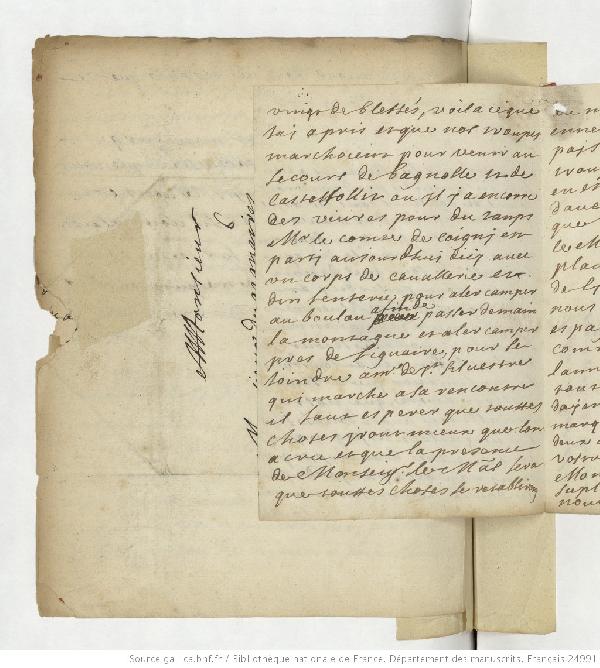 vingt de blessés, voila ce que
j'ai apris et que nos troupes
marchoient pour venir au
secours de Bagnolle et de
Castelfollit ou il j a encore
des vivres pour du tamps
Mr. le comte de coignj est
parti aujourdhui dicj avec
un corps de cavallerie et
dinfenterie pour aler camper
au boulou afin de passer demain
la montagne et aler camper
pres de figuaire, pour se
ioindre a mr. de st. siluestre
qui marche a la rencontre
il faut esperer que touttes
choses jront mieux que lon
a cru et que la presence
de Monseigr. le Mal. sera
que touttes choses se retabliront
Monsieur
Source gallica.bnf.fr / Bibliothèque nationale de France. Département des manuscrits. Français 24991